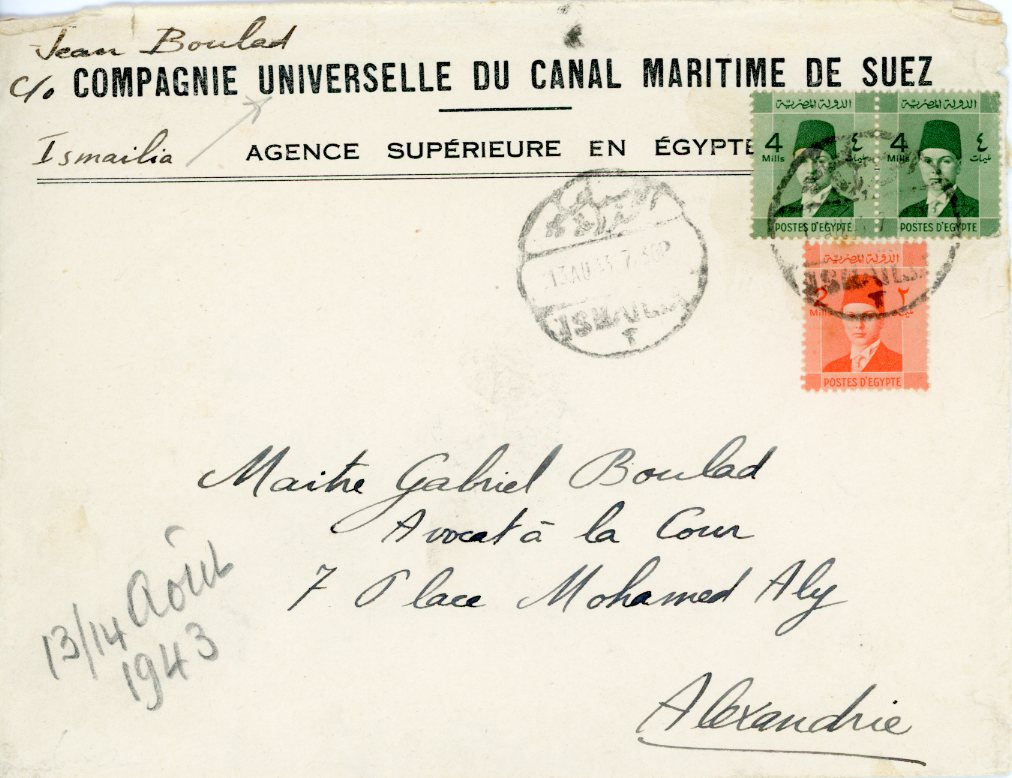 Jean Boulad
c/o COMPAGNIE UNIVERSELLE DU CANAL MARITIME DE SUEZ
Ismailia AGENCE SUPÉRIEURE EN ÉGYPTE
الدولة المصرية الدولة المصرية
4 ٤ 4 ٤
Mills مليمات Mills مليمات
POSTES D'EGYPTE POSTES D'EGYPTE
13 AU 43 7
الدولة المصرية
2 ٢
Mills
POSTES D'EGYPTE
Maitre Gabriel Boulad
Avocat à la Cour
7 Place Mohamed Aly
Alexandrie
13/14 Août
1943